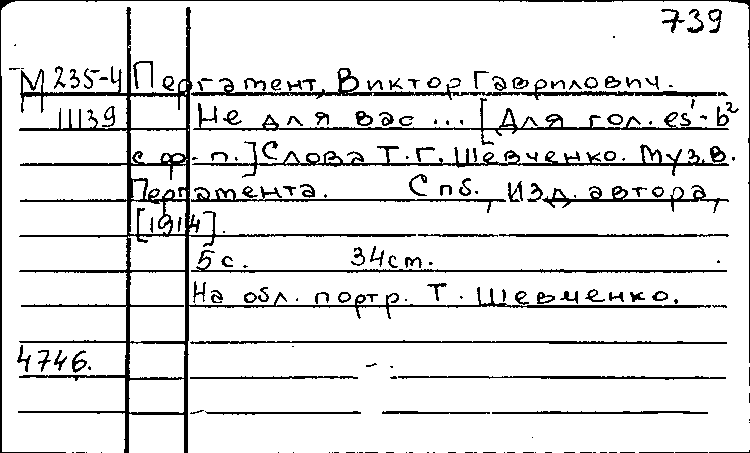 739
М 235-4 Пергамент, Виктор Гаврилович.
11139 Не для вас ... [Для гол. es¹-b²
с ф.-п.] Слова Т.Г. Шевченко. Муз. В.
Пергамента. Спб., Изд. автора,
[1914].
5 с. 34 см.
На обл. портр. Т. Шевченко.
4746.